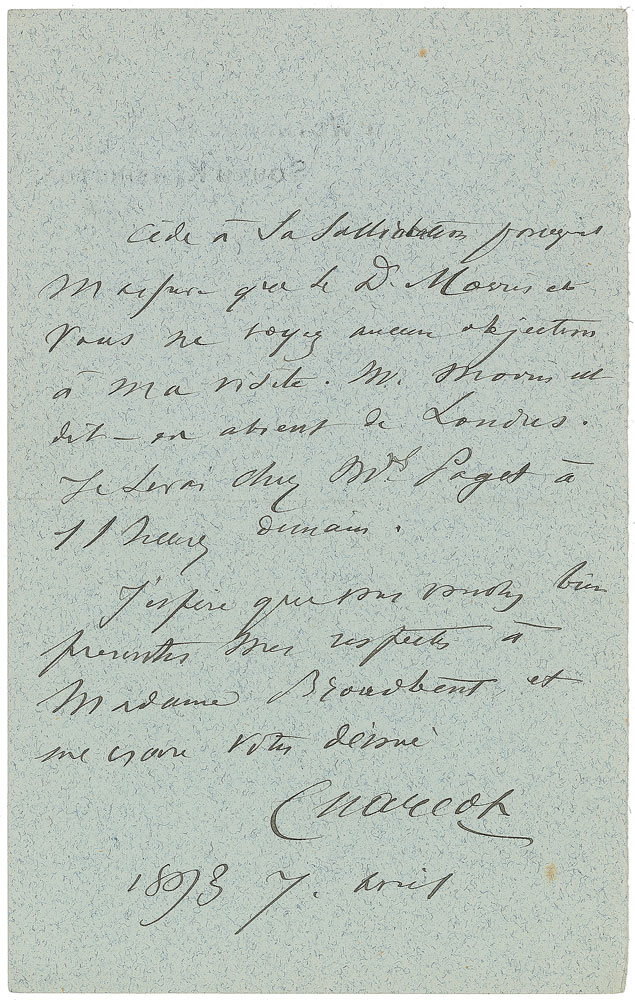 cède à sa sollicitation puisqu'on
m'assure que le Dr. Morris et
vous ne voyez aucun objection
à ma visite. M. Morris est
dit-on absent de Londres.
Je serai chez Mrs. Paget à
11 heures demain.
J'espère que vous voudrez bien
presenter mes respects à
Madame Broadbent, et
me croire votre dévoué
Charcot
1893 7. Avril